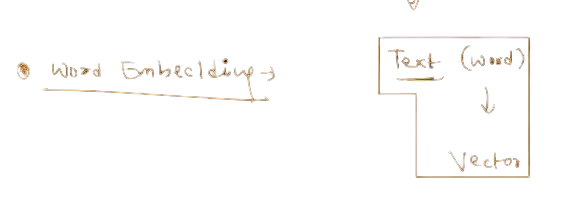 • Word Embedding →
Text (word)
↓
Vector